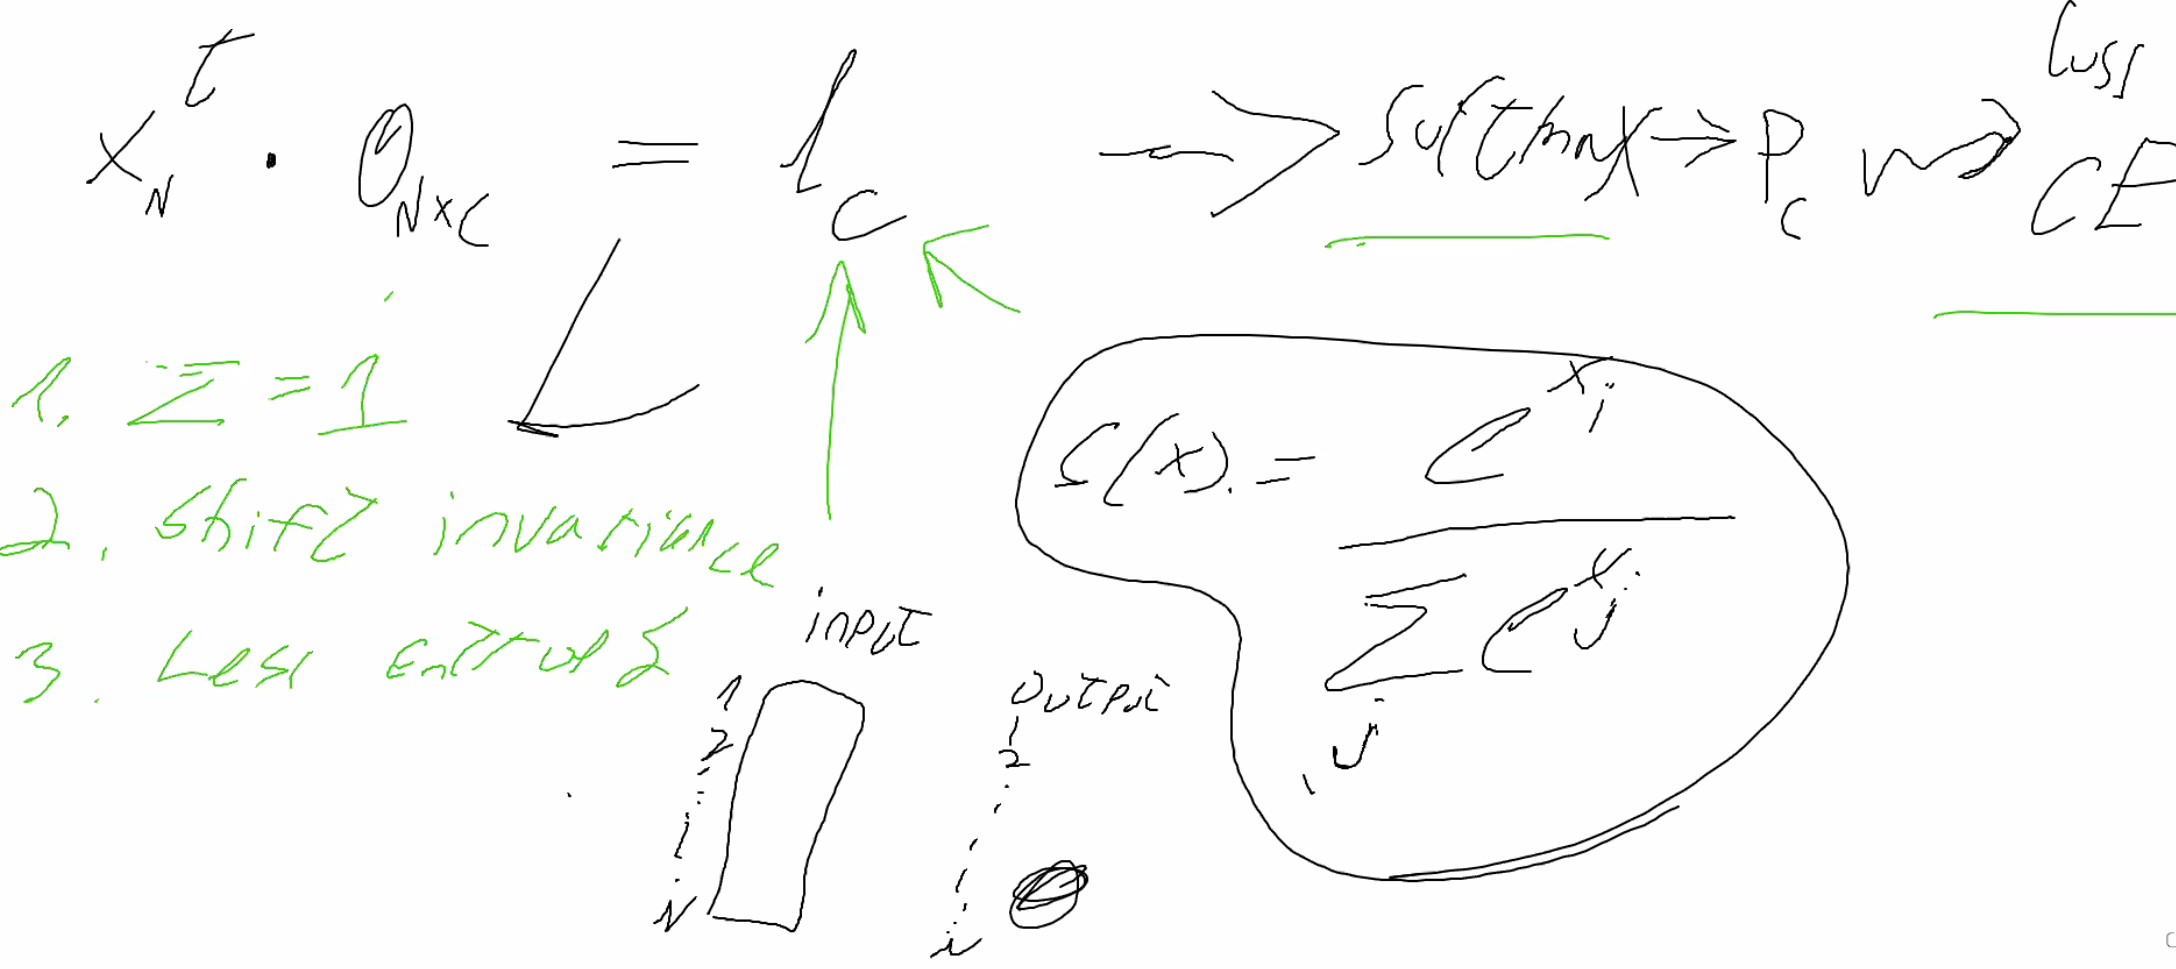 x_N^t · θ_{N×C} = l_C → softmax → P_C → loss CE
1. Σ = 1
2. shift invariance
3. Less Entropy
S(x)_i = e^{x_i} / Σ_j e^{x_j}
input
1
2
N
output
1
2
i